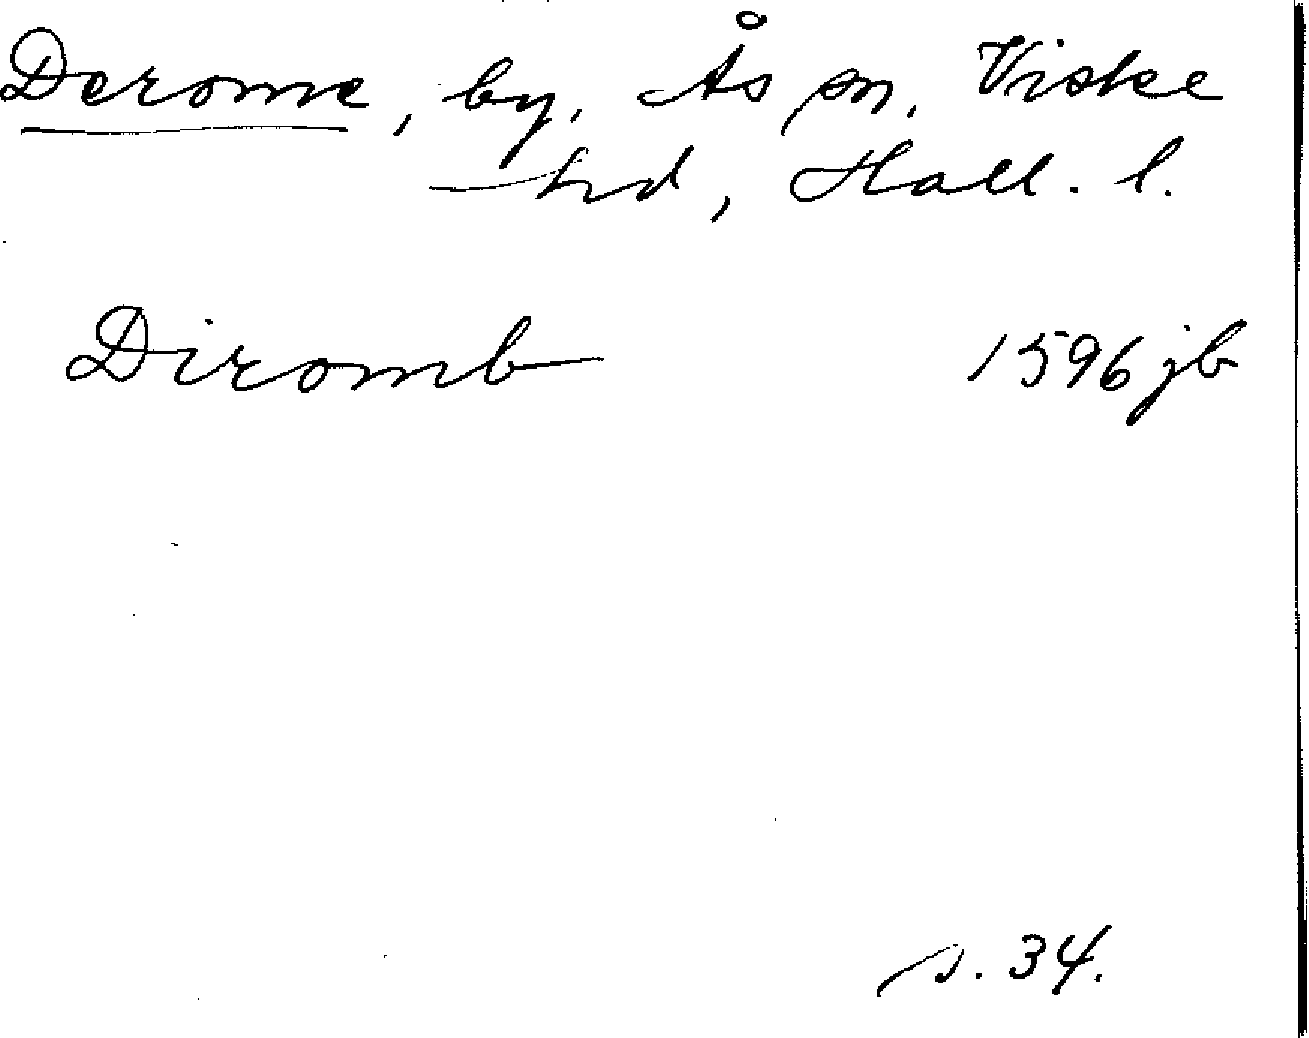 Derome, by, Ås sn, Viske
hd, Hall. l.
Diromb 1596 jb
s. 34.